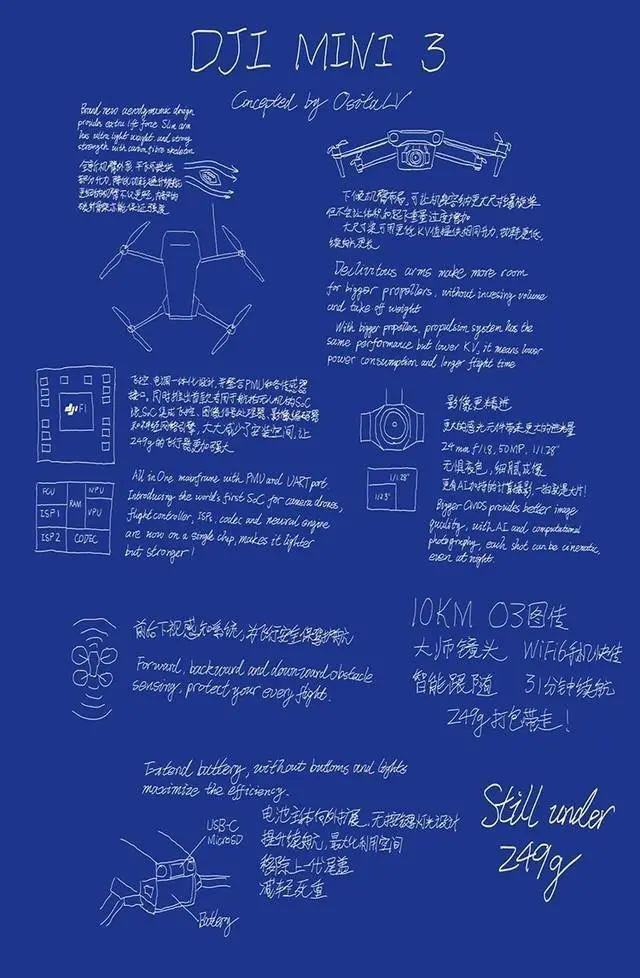 DJI MINI 3
Concepted by OsitaLV
Brand new aerodynamic design
provides extra life force. Slim arm
has ultra light weight and strong
strength with carbon fibre skeleton
下倾机臂布局,可让机身容纳更大尺寸螺旋桨
但不会让体积和起飞重量过度增加
大尺寸桨可用更低KV值提供相同升力,功耗更低,
续航更长
Declivitous arms make more room
for bigger propellers, without invesing volume
and take off weight
With bigger propellers, propulsion system has the
same performance but lower KV, it means lower
power consumption and longer flight time
dji FI
飞控、电调一体化设计,并整合PMU和各传感器
接口,同时推出首款专用于航拍无人机的SoC
该SoC集成飞控、图像信号处理器、影像编码器
和神经网络引擎,大大减少了安装空间,让
249g的飞行器更加强大
FCU
RAM
NPU
ISP 1
VPU
ISP 2
CODEC
All in One mainframe with PMU and UART port.
Introducing the world's first SoC for camera drones,
flight controller, ISP, codec and neural engine
are now on a single chip, makes it lighter
but stronger!
影像更精进
24mm f/1.8, 50MP, 1/1.28"
无惧夜色,细腻成像
更有AI加持的计算摄影,一拍就是大片!
Bigger CMOS provides better image
quality, with AI and computational
photography, each shot can be cinematic
even at night.
1/1.28"
1/2.3"
前后下视感知系统,为飞行安全保驾护航
Forward, backward and downward obstacle
sensing, protect your every flight.
10KM O3图传
大师镜头 WiFi6手机快传
智能跟随 31分钟续航
249g打包带走!
Extend battery, without buttons and lights
maximize the efficiency.
电池主体向外扩展,无按键和灯光设计
提升续航,最大化利用空间
移除上一代尾盖
减轻死重
USB-C
MicroSD
Battery
Still under
249g